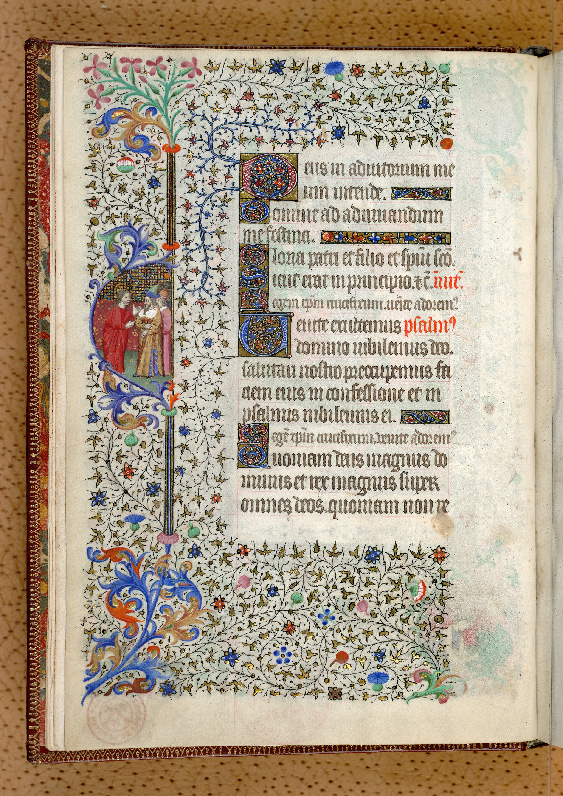 Deus in adiutorium me
um intende.
Domine ad adiuuandum
me festina.
Gloria patri et filio et spiritui sco.
Sicut erat in principio. ⁊ c̃. inuit̃.
Regem xpm crucifixum. uenite adorem9
Uenite exultemus psalm9
domino iubilemus deo.
salutari nostro preocupemus fa
ciem eius in confessione et in
psalmis iubilemus ei.
Regẽ xpm crucifixum. uenite adorem9
Quoniam deus magnus do
minus et rex magnus super
omnes deos. quoniam non re